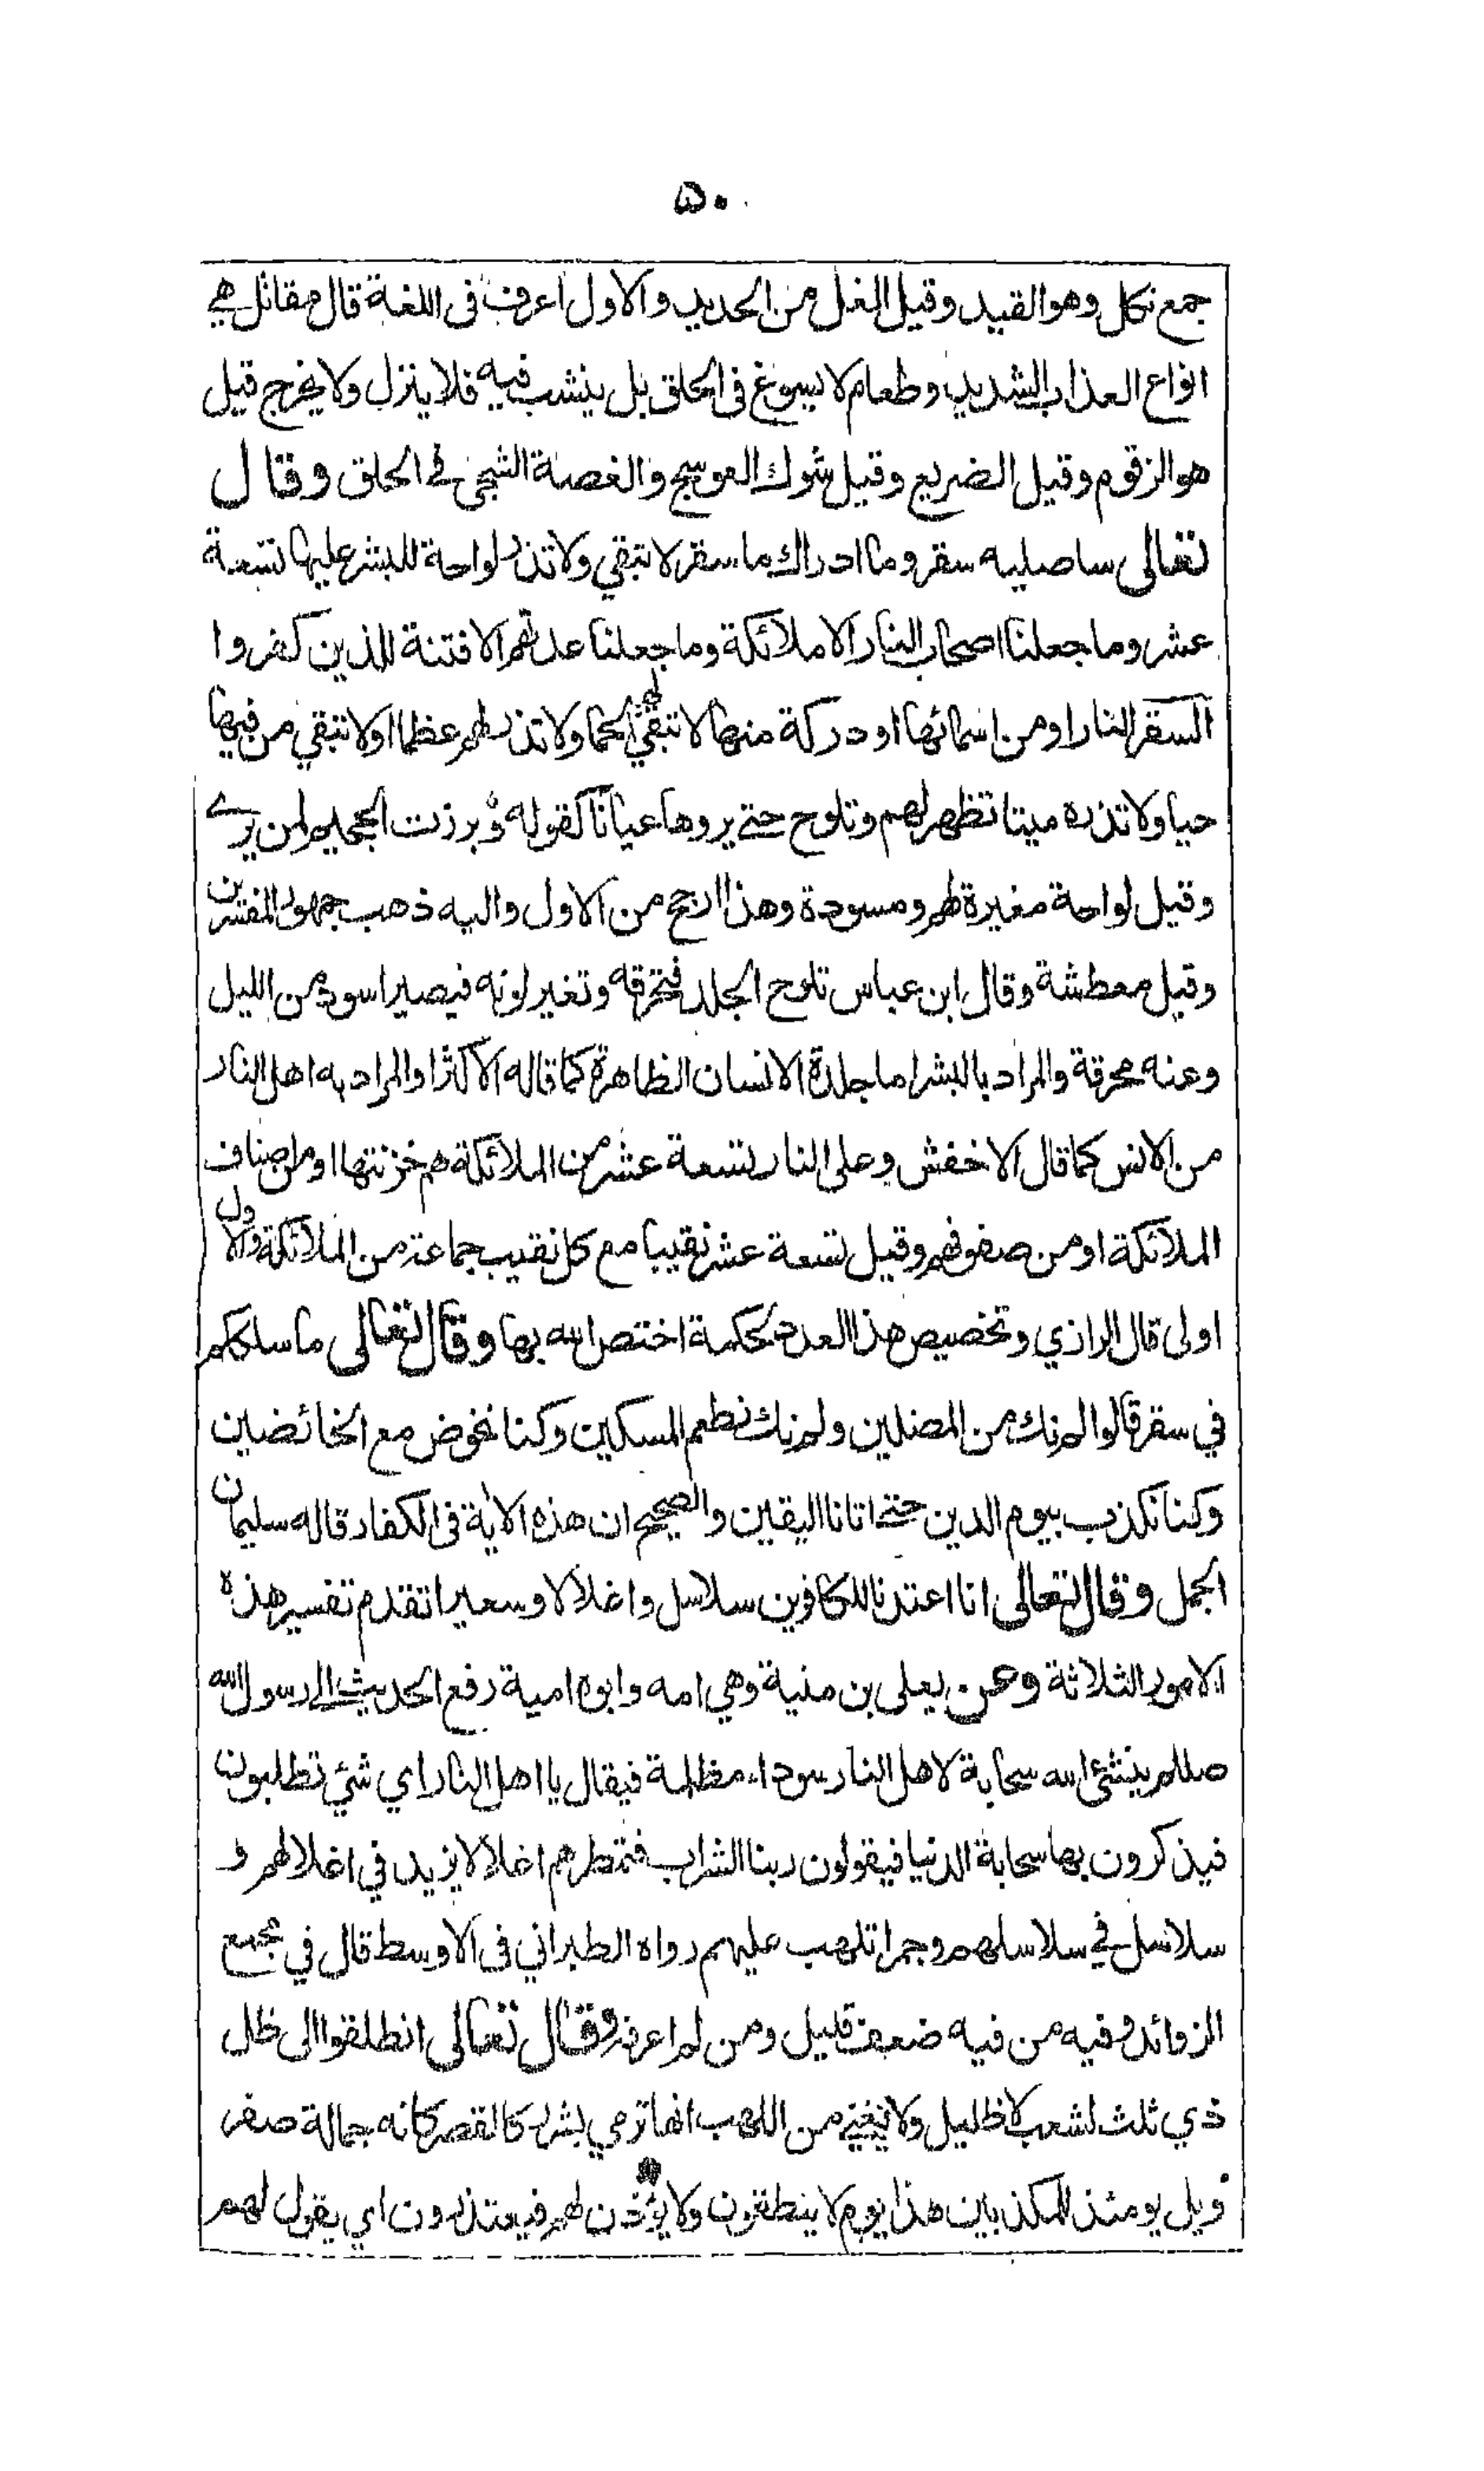 ۵۰
جمع نكل وهو القيد وقيل الغل من الحديد والاول اعرف فى اللغة قال مقاتل هي
انواع العذاب الشديد وطعام لا يسوغ فى الحلق بل ينشب فيه فلا ينزل ولا يخرج قيل
هو الزقوم وقيل الضريع وقيل شوك العوسج والغصة الشجى في الحلق وقال
تعالى ساصليه سقر وما ادراك ما سقر لا تبقي ولا تذر لواحة للبشر عليها تسعة
عشر وما جعلنا اصحاب النار الا ملائكة وما جعلنا عدتهم الا فتنة للذين كفروا
السقر النار او من اسمائها او دركة منها لا تبقي لهم لحما ولا تذر لهم عظما او لا تبقي من فيها
حيا ولا تذره ميتا تظهر لهم وتلوح حتى يروها عيانا كقوله وبرزت الجحيم لمن يرى
وقيل لواحة مغيرة لهم ومسودة وهذا ارجح من الاول واليه ذهب جمهور المفسرين
وقيل معطشة وقال ابن عباس تلوح الجلد فتحرقه وتغير لونه فيصير اسود من الليل
وعنه محرقة والمراد بالبشر اما جلدة الانسان الظاهرة كما قاله الاكثر او المراد به اهل النار
من الانس كما قال الاخفش وعلى النار تسعة عشر من الملائكة هم خزنتها او من اصناف
الملائكة او من صفوفهم وقيل تسعة عشر نقيبا مع كل نقيب جماعة من الملائكة والاول
اولى قال الرازي وتخصيص هذا العدد لحكمة اختص الله بها وقال تعالى ما سلككم
في سقر قالوا لم نك من المصلين ولم نك نطعم المسكين وكنا نخوض مع الخائضين
وكنا نكذب بيوم الدين حتى اتانا اليقين والصحيح ان هذه الاية فى الكفار قاله سليمان
الجمل وقال تعالى انا اعتدنا للكافرين سلاسل واغلالا وسعيرا تقدم تفسير هذه
الامور الثلاثة وعن يعلى بن منية وهي امه وابوه امية رفع الحديث الى رسول الله
صللم ينشئ الله سحابة لاهل النار سوداء مظلمة فيقال يا اهل النار اي شيء تطلبون
فيذكرون بها سحابة الدنيا فيقولون ربنا الشراب فتمطرهم اغلالا يزيد في اغلالهم و
سلاسل في سلاسلهم وجمرا تلهب عليهم رواه الطبراني فى الاوسط قال في مجمع
الزوائد وفيه من فيه ضعف قليل ومن لم اعرفه وقال تعالى انطلقوا الى ظل
ذي ثلث شعب لا ظليل ولا يغني من اللهب انها ترمي بشرر كالقصر كانه جمالة صفر
ويل يومئذ للمكذبين هذا يوم لا ينطقون ولا يؤذن لهم فيعتذرون اي يقول لهم